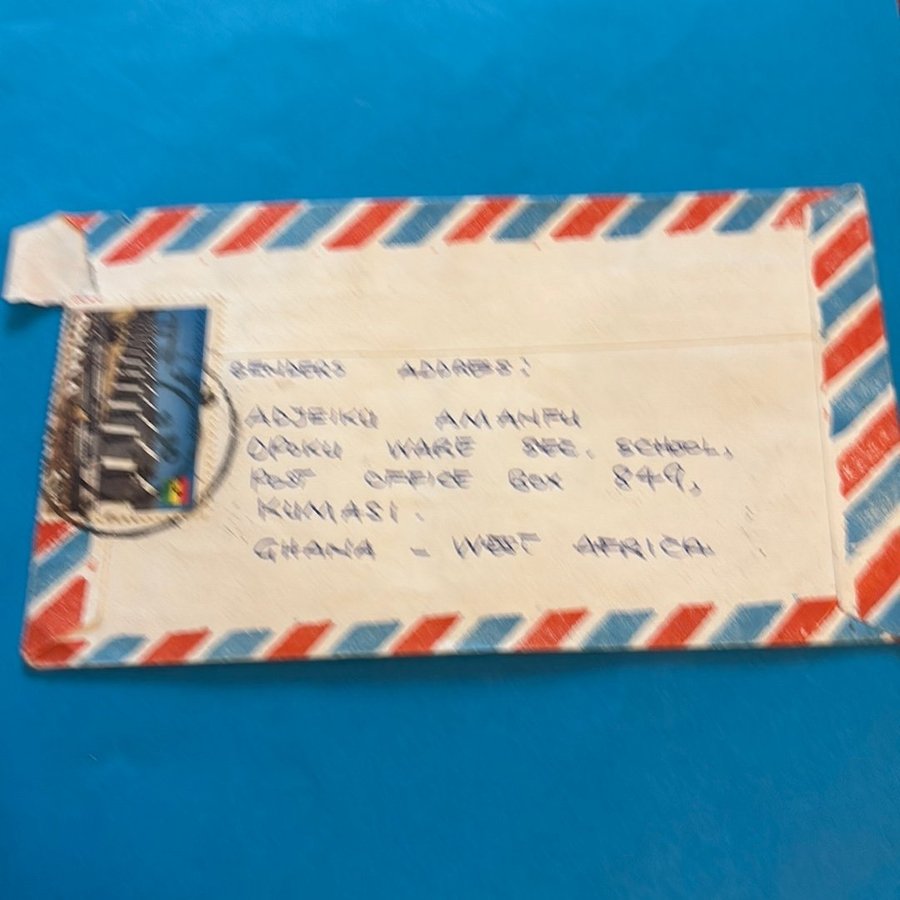 SENDERS ADDRESS:
ADJEIKU AMANFU
OPOKU WARE SEC. SCHOOL,
POST OFFICE BOX 849,
KUMASI.
GHANA - WEST AFRICA.